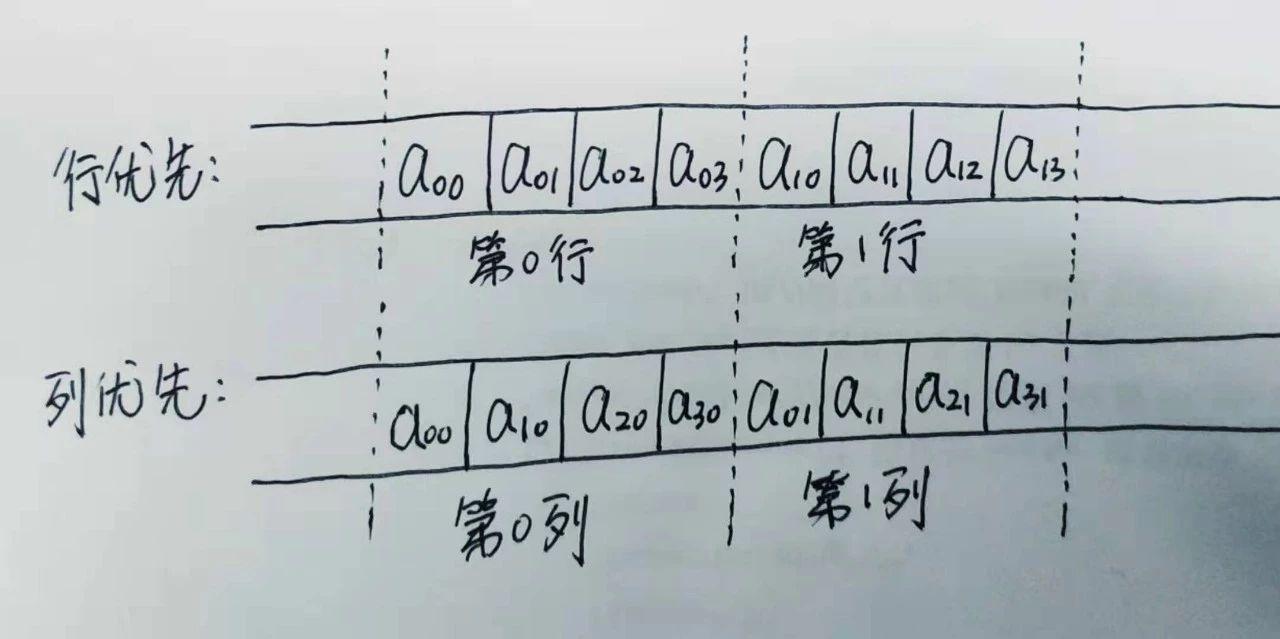 行优先: a₀₀ a₀₁ a₀₂ a₀₃ a₁₀ a₁₁ a₁₂ a₁₃
第0行 第1行
列优先: a₀₀ a₁₀ a₂₀ a₃₀ a₀₁ a₁₁ a₂₁ a₃₁
第0列 第1列